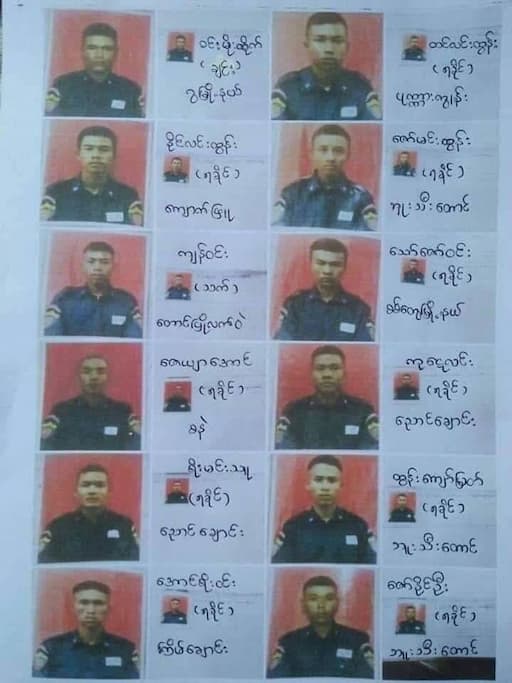 ဝင်းမိုးထိုက်
(ချင်း)
ဂွမြို့နယ်
တင်လင်းထွန်း
(ရခိုင်)
ပုဏ္ဏားကျွန်း
နိုင်လင်းထွန်း
(ရခိုင်)
ကျောက်ဖြူ
ဇော်မင်းထွန်း
(ရခိုင်)
ဘူးသီးတောင်
ကျန်ဝင်း
(သက်)
တောင်မြို့လက်ဝဲ
သော်ဇော်ဝင်း
(ရခိုင်)
စစ်တွေမြို့နယ်
ဇေယျာအောင်
(ရခိုင်)
စနဲ
(ရခိုင်)
ညောင်ချောင်း
စိုးမင်းသူ
(ရခိုင်)
ညောင်ချောင်း
ထွန်းကျော်မြတ်
(ရခိုင်)
ဘူးသီးတောင်
အောင်စိုးဝင်း
(ရခိုင်)
ကြိမ်ချောင်း
ဇော်နိုင်ဦး
(ရခိုင်)
ဘူးသီးတောင်